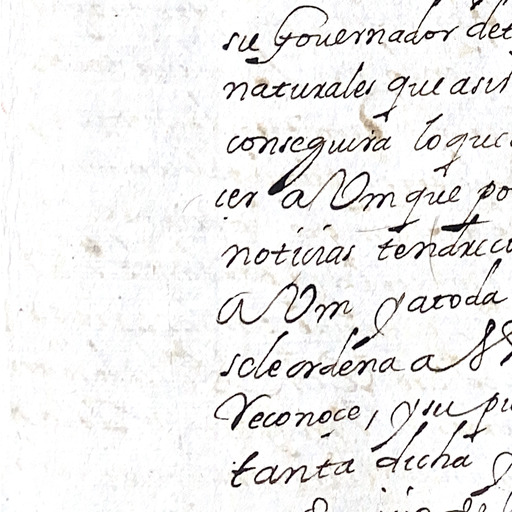 su Gouernador de
naturales que asis
conseguira lo que
cer a Vm que po
noticias tendre
a Vm y a toda
se le ordena a V
Reconoce, y su pu
tanta dicha y